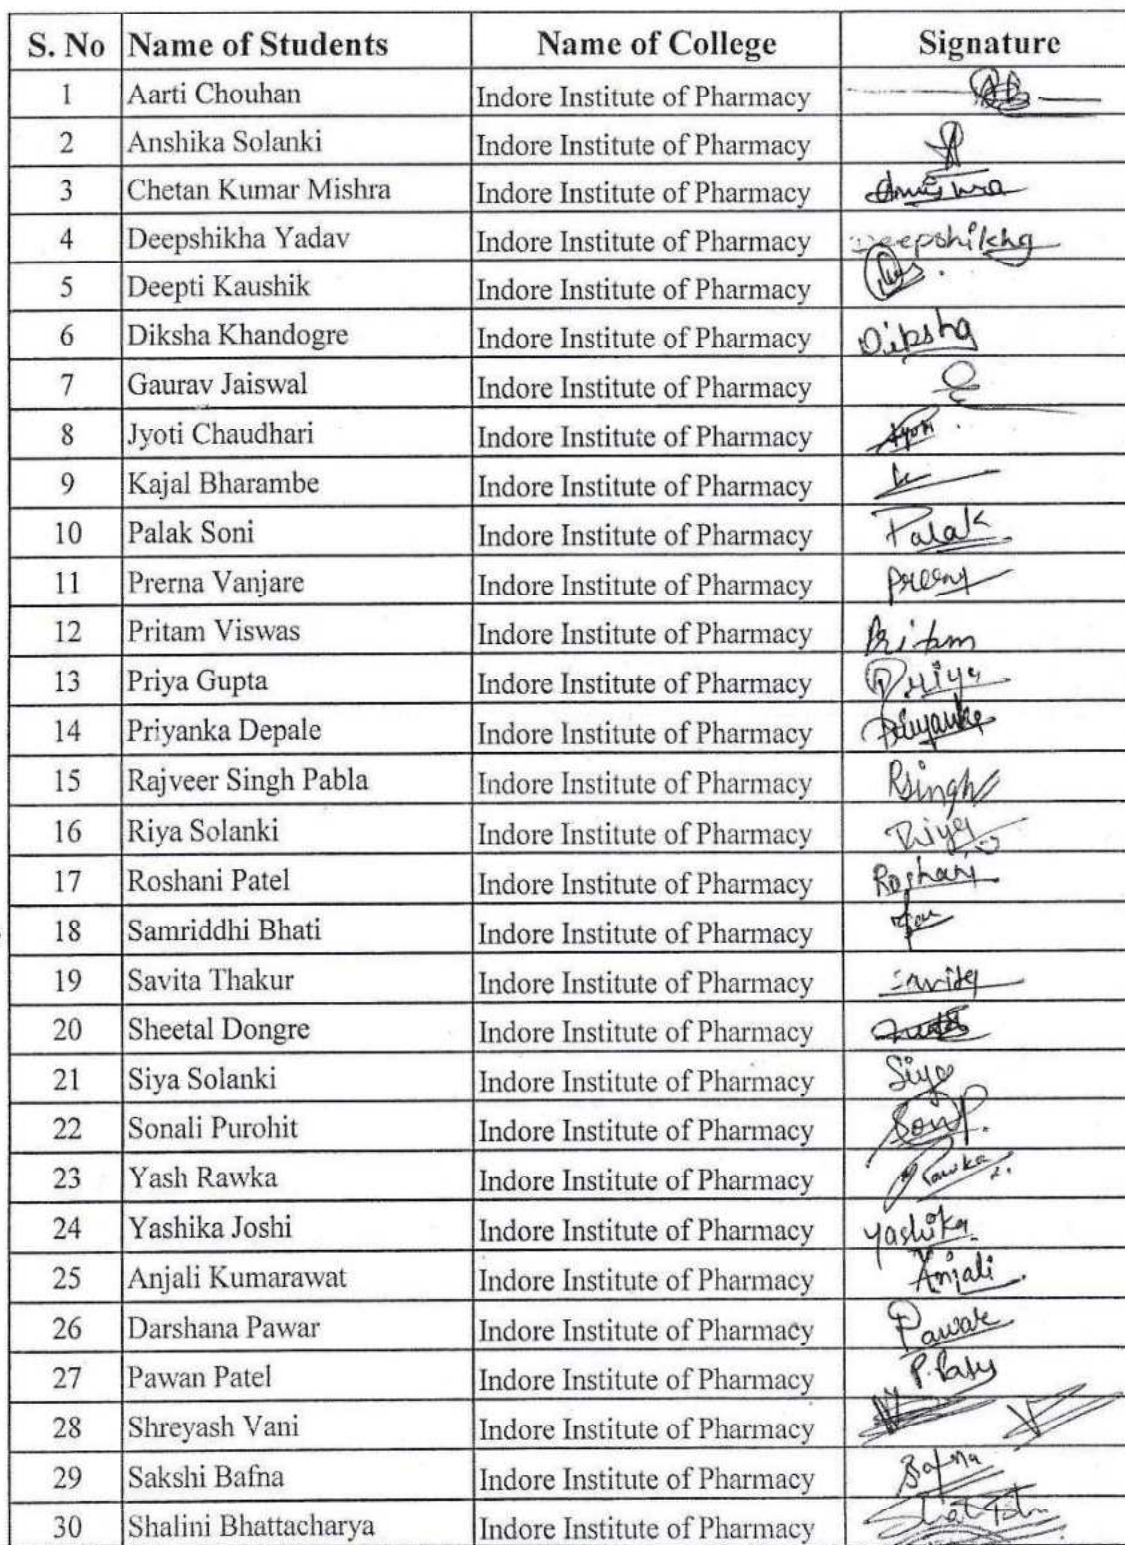 S. No Name of Students Name of College Signature
1 Aarti Chouhan Indore Institute of Pharmacy
2 Anshika Solanki Indore Institute of Pharmacy
3 Chetan Kumar Mishra Indore Institute of Pharmacy
4 Deepshikha Yadav Indore Institute of Pharmacy Deepshikha
5 Deepti Kaushik Indore Institute of Pharmacy
6 Diksha Khandogre Indore Institute of Pharmacy Diksha
7 Gaurav Jaiswal Indore Institute of Pharmacy
8 Jyoti Chaudhari Indore Institute of Pharmacy Jyoti
9 Kajal Bharambe Indore Institute of Pharmacy
10 Palak Soni Indore Institute of Pharmacy Palak
11 Prerna Vanjare Indore Institute of Pharmacy
12 Pritam Viswas Indore Institute of Pharmacy Pritam
13 Priya Gupta Indore Institute of Pharmacy Priya
14 Priyanka Depale Indore Institute of Pharmacy Priyanka
15 Rajveer Singh Pabla Indore Institute of Pharmacy RSingh
16 Riya Solanki Indore Institute of Pharmacy Riya
17 Roshani Patel Indore Institute of Pharmacy Roshani
18 Samriddhi Bhati Indore Institute of Pharmacy
19 Savita Thakur Indore Institute of Pharmacy Savita
20 Sheetal Dongre Indore Institute of Pharmacy
21 Siya Solanki Indore Institute of Pharmacy Siya
22 Sonali Purohit Indore Institute of Pharmacy SonP.
23 Yash Rawka Indore Institute of Pharmacy Rawka
24 Yashika Joshi Indore Institute of Pharmacy Yashika
25 Anjali Kumarawat Indore Institute of Pharmacy Anjali
26 Darshana Pawar Indore Institute of Pharmacy Pawar
27 Pawan Patel Indore Institute of Pharmacy
28 Shreyash Vani Indore Institute of Pharmacy
29 Sakshi Bafna Indore Institute of Pharmacy Bafna
30 Shalini Bhattacharya Indore Institute of Pharmacy